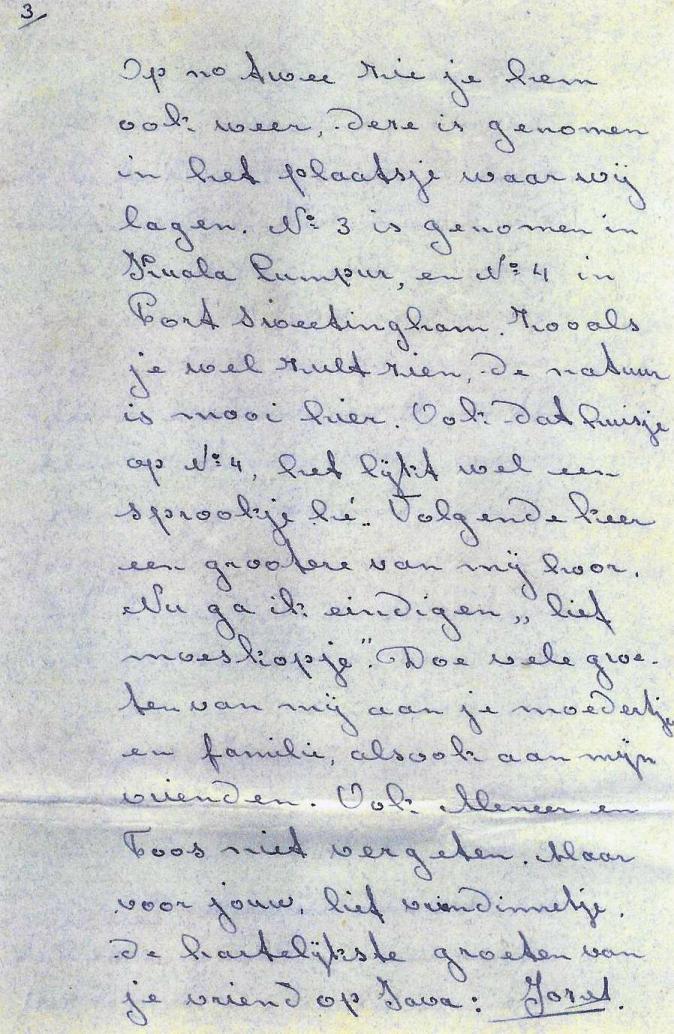 3/
Op no twee zie je hem
ook weer, deze is genomen
in het plaatsje waar wij
lagen. No 3 is genomen in
Kuala Lumpur, en No 4 in
Port Sweetingham. Zooals
je wel zult zien, de natuur
is mooi hier. Ook dat huisje
op No 4, het lijkt wel een
sprookje hé. Volgende keer
een grootere van mij hoor.
Nu ga ik eindigen „ lief
moeskopje". Doe vele groe-
ten van mij aan je moedertje
en familie, alsook aan mijn
vrienden. Ook Meneer en
Toos niet vergeten. Maar
voor jouw, lief vriendinnetje,
de hartelijkste groeten van
je vriend op Java: